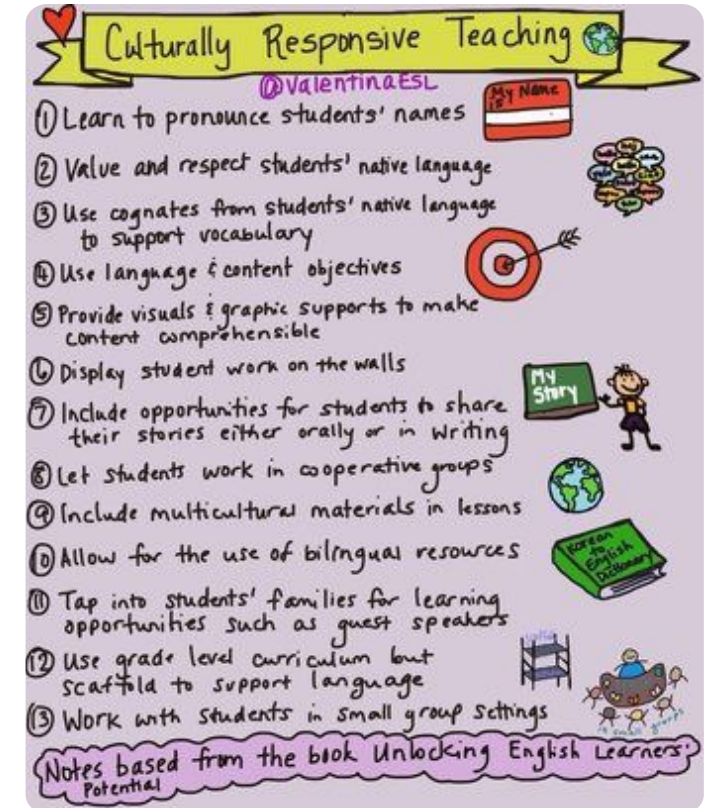 Culturally Responsive Teaching
@ValentinaESL
① Learn to pronounce students' names
My Name
is
② Value and respect students' native language
③ Use cognates from students' native language
to support vocabulary
④ Use language & content objectives
⑤ Provide visuals & graphic supports to make
content comprehensible
⑥ Display student work on the walls
My
Story
⑦ Include opportunities for students to share
their stories either orally or in writing
⑧ Let students work in cooperative groups
⑨ Include multicultural materials in lessons
⑩ Allow for the use of bilingual resources
Korean
to
English
Dictionary
⑪ Tap into students' families for learning
opportunities such as guest speakers
⑫ Use grade level curriculum but
scaffold to support language
⑬ Work with students in small group settings
in small groups
Notes based from the book Unlocking English Learners'
Potential